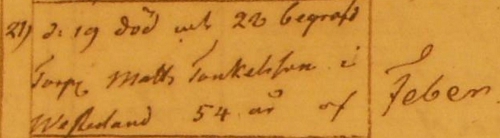 21) d: 19 död och 22 begrafd
Torp. Matts Tonkelsson i
Westerland 54 år af
Feber